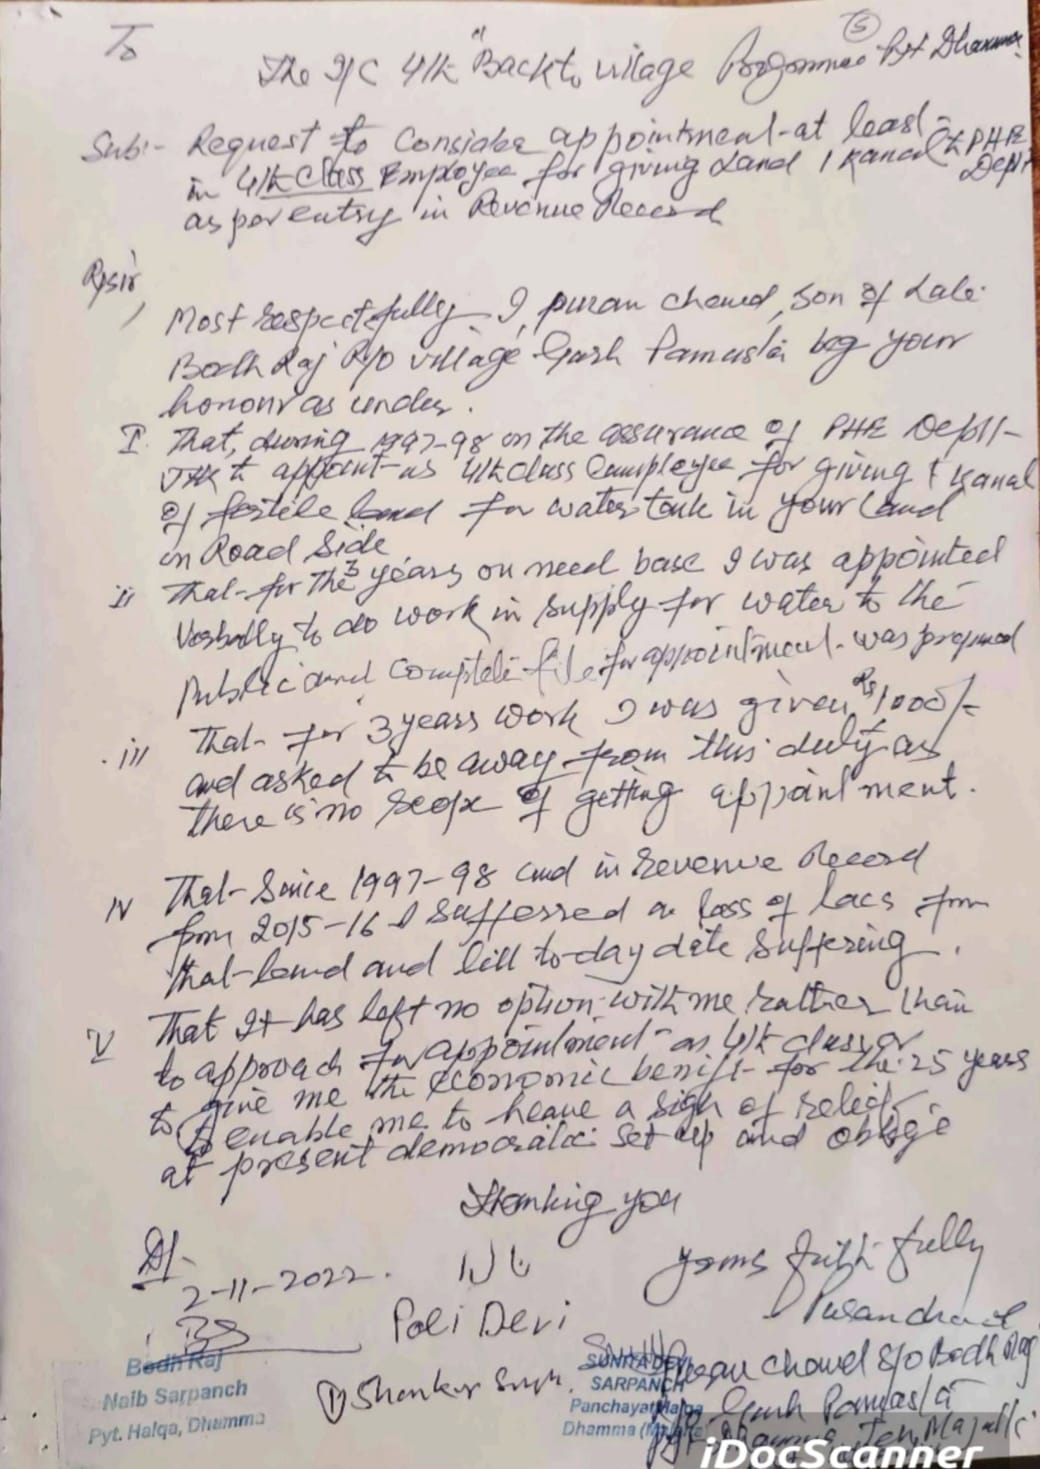 (5)
To
The I/C 4th "Back to village Programme Pyt Dhamma
Sub:- Request to Consider appointment at least
in 4th class Employee for giving Land 1 Kanal to PHE Deptt
as per entry in Revenue Record
R/sir,
Most respectfully I, puran chand, son of Late
Bodh Raj R/o village Garh Pamasta beg your
honour as under.
I. That, during 1997-98 on the assurance of PHE Deptt-
J&K to appoint as 4th class Employee for giving 1 Kanal
of fertile land for water tank in your land
on Road Side
ii That for the 3 years on need base I was appointed
Verbally to do work in supply for water to the
public and complete file for appointment was prepared
iii That for 3 years work I was given Rs 1000/-
and asked to be away from this duty as
there is no scope of getting appointment.
IV That Since 1997-98 and in revenue Record
from 2015-16 I suffered a loss of lacs from
that land and till to-day date suffering.
V That It has left no option with me rather than
to approach for appointment as 4th class or
to give me the economic benifit for the 25 years
to enable me to heave a sigh of relief
at present democratic set up and oblige
Thanking you
Dt-
2-11-2022.
Yours faithfully
Puran chand
Poli Devi
Puran Chand S/o Bodh Raj
Bodh Raj
Naib Sarpanch
Pyt. Halqa, Dhamma
Shanker Singh
SUNITA DEVI
SARPANCH
Panchayat Halqa
Dhamma
R/o Garh Pamasta
Pyt Dhamma Teh. Majalta
iDocScanner